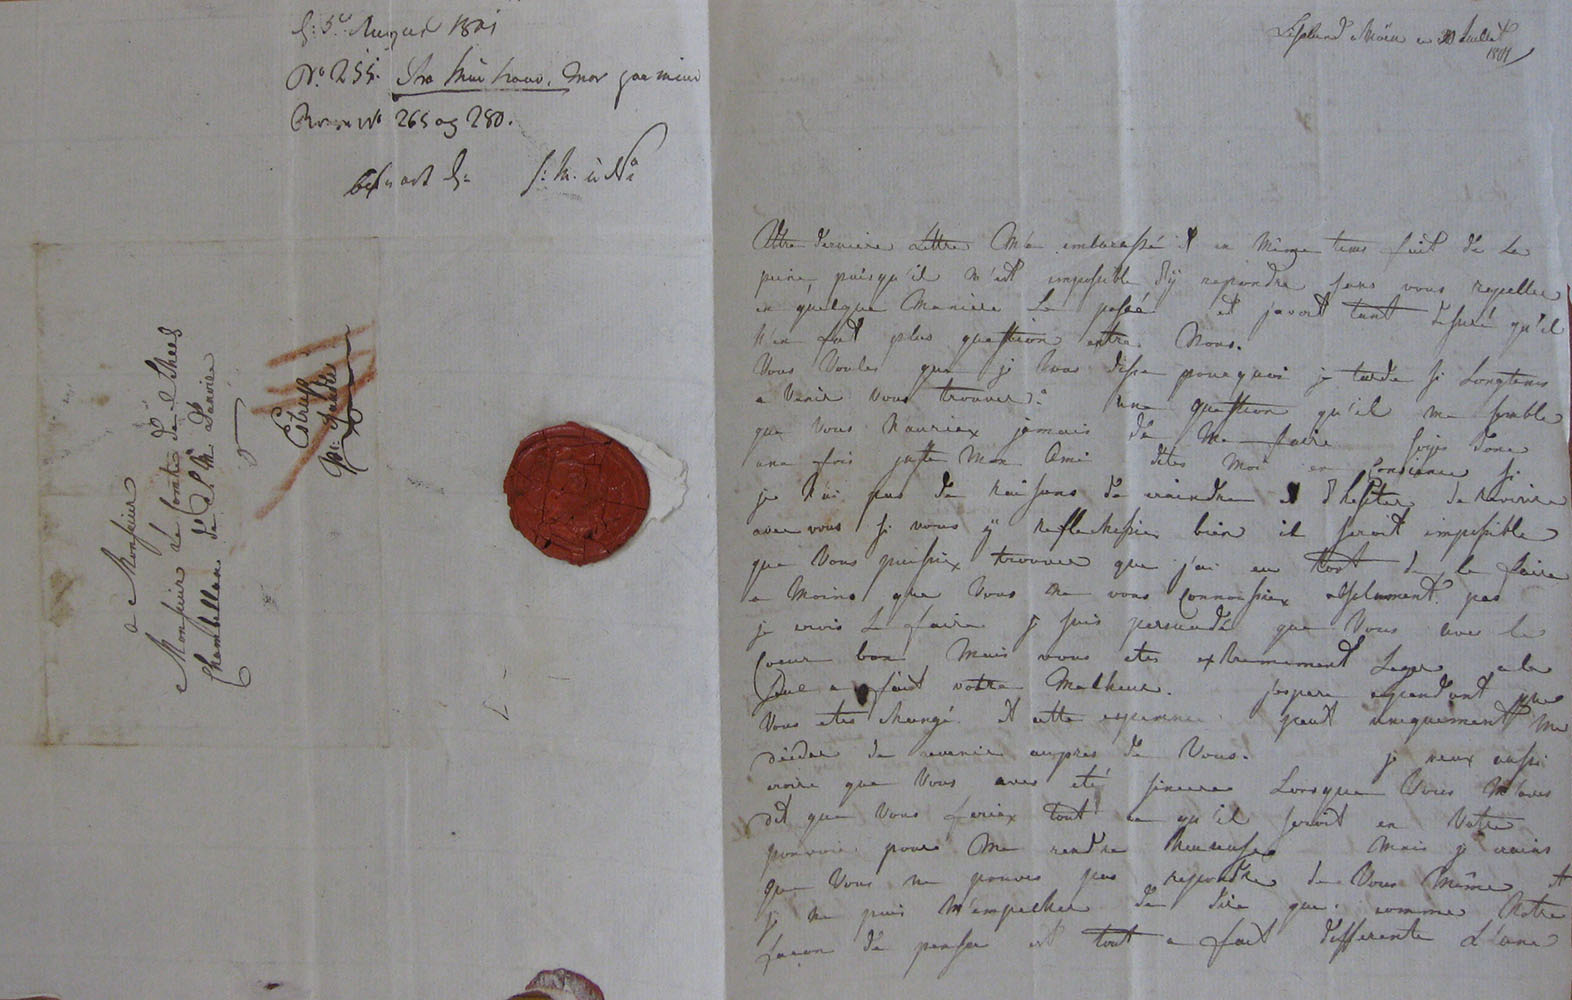 August 1801
No. 255.
265 og 280.
a Monsieur
Monsieur de Conte de
Chambellan de S. M. Danoise
a
en Juillet
1801
Votre derniere Lettre M'a embarassé et en même tems fait de La
peine puisqu'il m'est impossible d'ÿ repondre sans vous rapeller
en quelque Maniere Le passé et javois tant desiré qu'il
n'en fut plus question entre Nous.
Vous Voules que je Vous disse pourquoi je tarde si Longtems
a Venir vous trouver. une question qu'il me semble
que Vous N'auriex jamais du Me faire soÿes donc
une fois juste Mon Ami dites Moi en Consience si
je N'ai pas de raisons de craindre et d'hesiter de
avec vous si vous ÿ bien il seroit impossible
que Vous puissiex trouver que j'ai eu tort de le faire
a Moins que Vous ne vous Connoissiex absolument pas
je crois Le faire je suis persuadé que Vous aves le
Coeur bon Mais vous etes extremement Leger
seul a fait votre Malheur. j'espere cependant que
Vous etes changé et cette esperance peut uniquement Me
decider de revenir aupres de Vous. je veux aussi
croire que Vous aves eté sincere Lorsque Vous M'aves
dit que Vous feriex tout ce qu'il seroit en Votre
pouvoir pour Me rendre heureuse Mais je crains
que Vous ne pouves pas repondre de Vous même et
je ne puis M'empecher de dire que comme Notre
facon de penser est tout a fait differente L'une